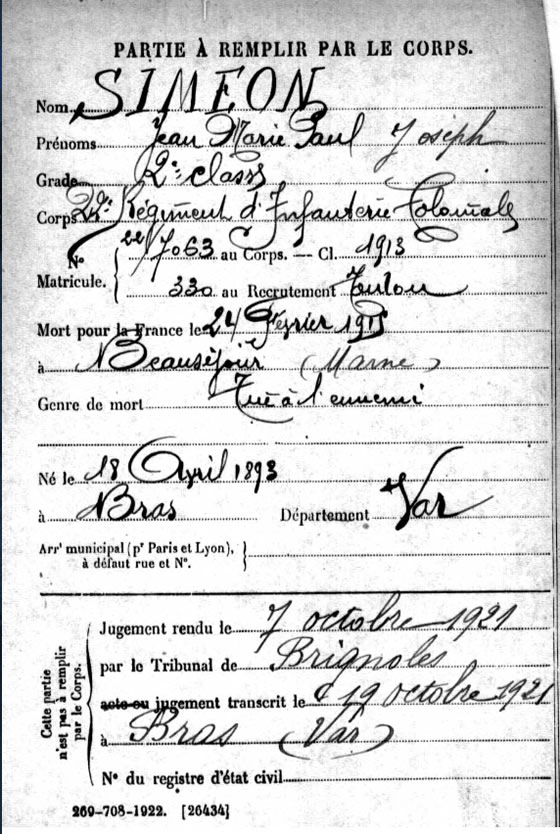 PARTIE À REMPLIR PAR LE CORPS.
Nom SIMEON
Prénoms Jean Marie Paul Joseph
Grade 2e classe
Corps Régiment d'Infanterie Coloniale
N° Matricule. { 22/7063 au Corps. — Cl. 1913
330 au Recrutement Toulon
Mort pour la France le 24 Février 1915
à Beauséjour (Marne)
Genre de mort Tué à l'ennemi
Né le 18 Avril 1893
à Bras Département Var
Arrt municipal (pr Paris et Lyon), à défaut rue et N°. }
Cette partie n'est pas à remplir par le Corps. {
Jugement rendu le 7 octobre 1921
par le Tribunal de Brignoles
acte ou jugement transcrit le 19 octobre 1921
à Bras (Var)
N° du registre d'état civil
269-708-1922. [26434]